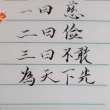 一曰慈
二曰俭
三曰不敢
為天下先